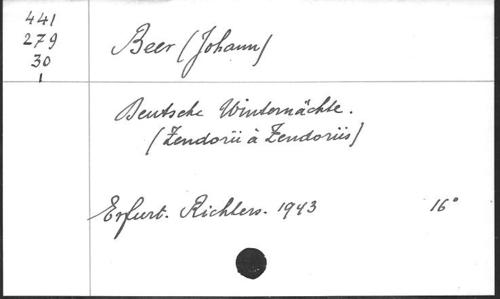 441
279
30
1
Beer (Johann)
Deutsche Winternächte.
(Zendorii à Zendoriis)
Erfurt. Richters. 1943 16°